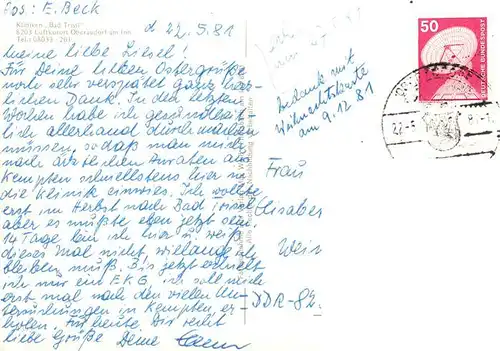 Abs: E. Beck
Kliniken „Bad Trissl"
8203 Luftkurort Oberaudorf am Inn
Tel.: 08033 - 201
d 22.5.81
Meine liebe Liesel!
Für Deine lieben Ostergrüße
noch sehr verspätet ganz herz-
lichen Dank. In den letzten
Wochen habe ich gesundheit-
lich allerhand durch machen
müssen, so daß man mich
nach ärztlichen Anraten aus
Kempten schnellstens hier in
die Klinik einwies. Ich wollte
erst im Herbst nach Bad Trissl
aber es mußte eben jetzt sein.
14 Tage bin ich hier u. weiß
dieses mal nicht, wie lange ich
bleiben muß. Bis jetzt erhielt
ich nur ein E.K.G. ich soll mich
erst mal nach den vielen Un-
tersuchungen in Kempten er-
holen. Für heute Dir recht
liebe Grüße Deine
bedankt mit
Weihnachtskarte
am 9.12.81
50
DEUTSCHE BUNDESPOST
22.-5.
Frau
Elisabet
Weis
DDR-82